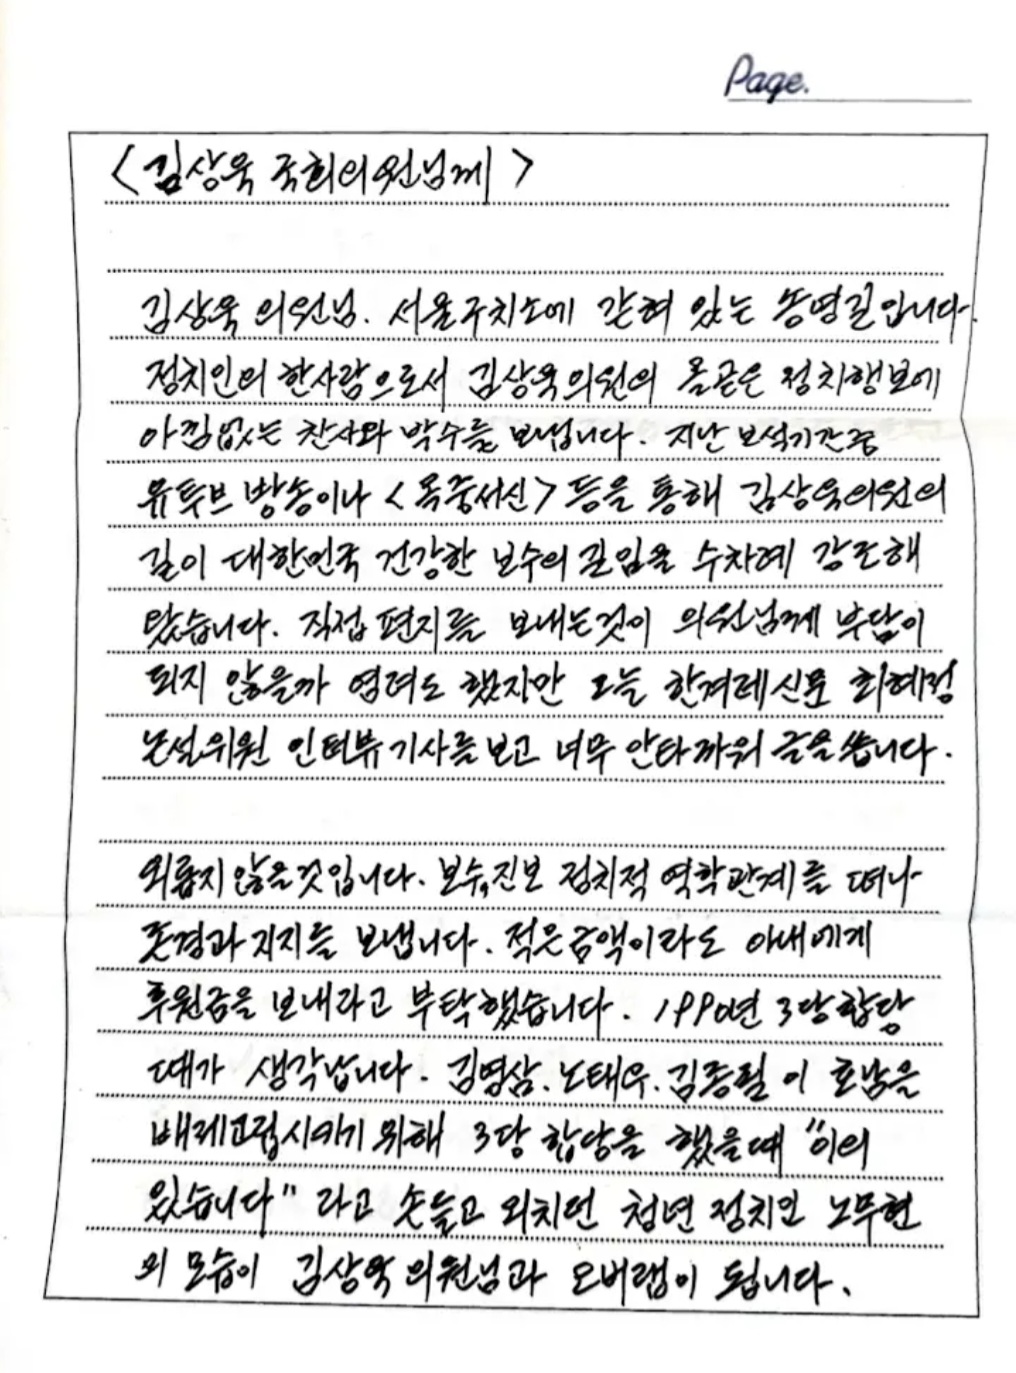 Page.
<김상욱 국회의원님께>
김상욱 의원님. 서울구치소에 갇혀 있는 송영길입니다.
정치인의 한사람으로서 김상욱의원의 올곧은 정치행보에
아낌없는 찬사와 박수를 보냅니다. 지난 보석기간중
유투브 방송이나 <옥중서신> 등을 통해 김상욱의원의
길이 대한민국 건강한 보수의 길임을 수차례 강조해
왔습니다. 직접 편지를 보내는것이 의원님께 부담이
되지 않을까 염려도 했지만 오늘 한겨레신문 최혜정
논설위원 인터뷰기사를 보고 너무 안타까워 글을 씁니다.
외롭지 않을것입니다. 보수, 진보 정치적 역학관계를 떠나
존경과 지지를 보냅니다. 적은금액이라도 아내에게
후원금을 보내라고 부탁했습니다. 1990년 3당합당
때가 생각납니다. 김영삼.노태우.김종필 이 호남을
배제고립시키기 위해 3당 합당을 했을때 "이의
있습니다" 라고 손들고 외치던 청년 정치인 노무현
의 모습이 김상욱 의원님과 오버랩이 됩니다.